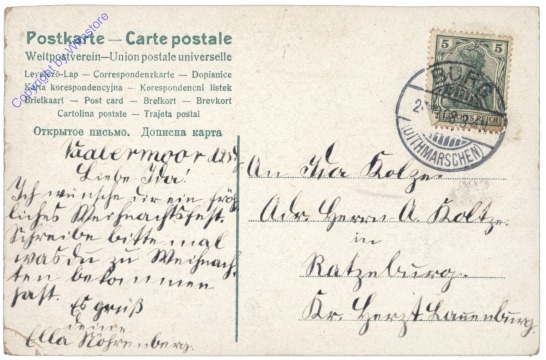 Postkarte — Carte postale
Weltpostverein — Union postale universelle
Levelező-Lap — Correspondenzkarte — Dopisnice
Karta korespondencyjna — Korespondenčni listek
Briefkaart — Post card — Brefkort — Brevkort
Cartolina postale — Tarjeta postal
Открытое письмо. Дописна карта
Copyright by Wanstore
5 5
DEUTSCHES REICH
BURG
(DITHMARSCHEN)
Liebe Ida!
Ich wünsche dir ein fröh
liches Weihnachtsfest.
Schreibe bitte mal
was du zu Weihnach
ten bekommen
hast.
Es grüß
deine
Ella Röhrenberg.
An Ida Koltze.
Adr. Herrn A. Koltze.
in
Ratzeburg.
Kr. Herzt Lauenburg.